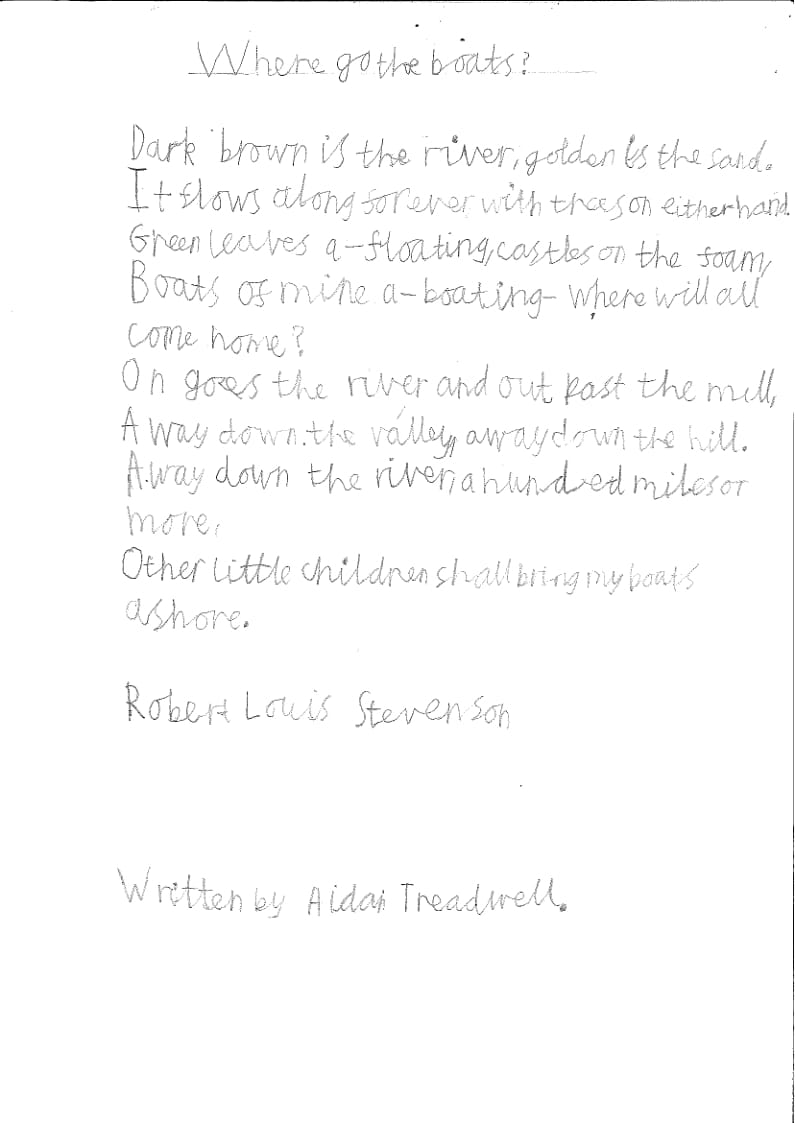 Where go the boats?
Dark brown is the river, golden is the sand.
It flows along for ever with trees on either hand.
Green leaves a-floating, castles on the foam,
Boats of mine a-boating- where will all
come home?
On goes the river and out past the mill,
Away down the valley, away down the hill.
Away down the river, a hundred miles or
more,
Other little children shall bring my boats
ashore.
Robert Louis Stevenson
Written by Aidan Treadwell.